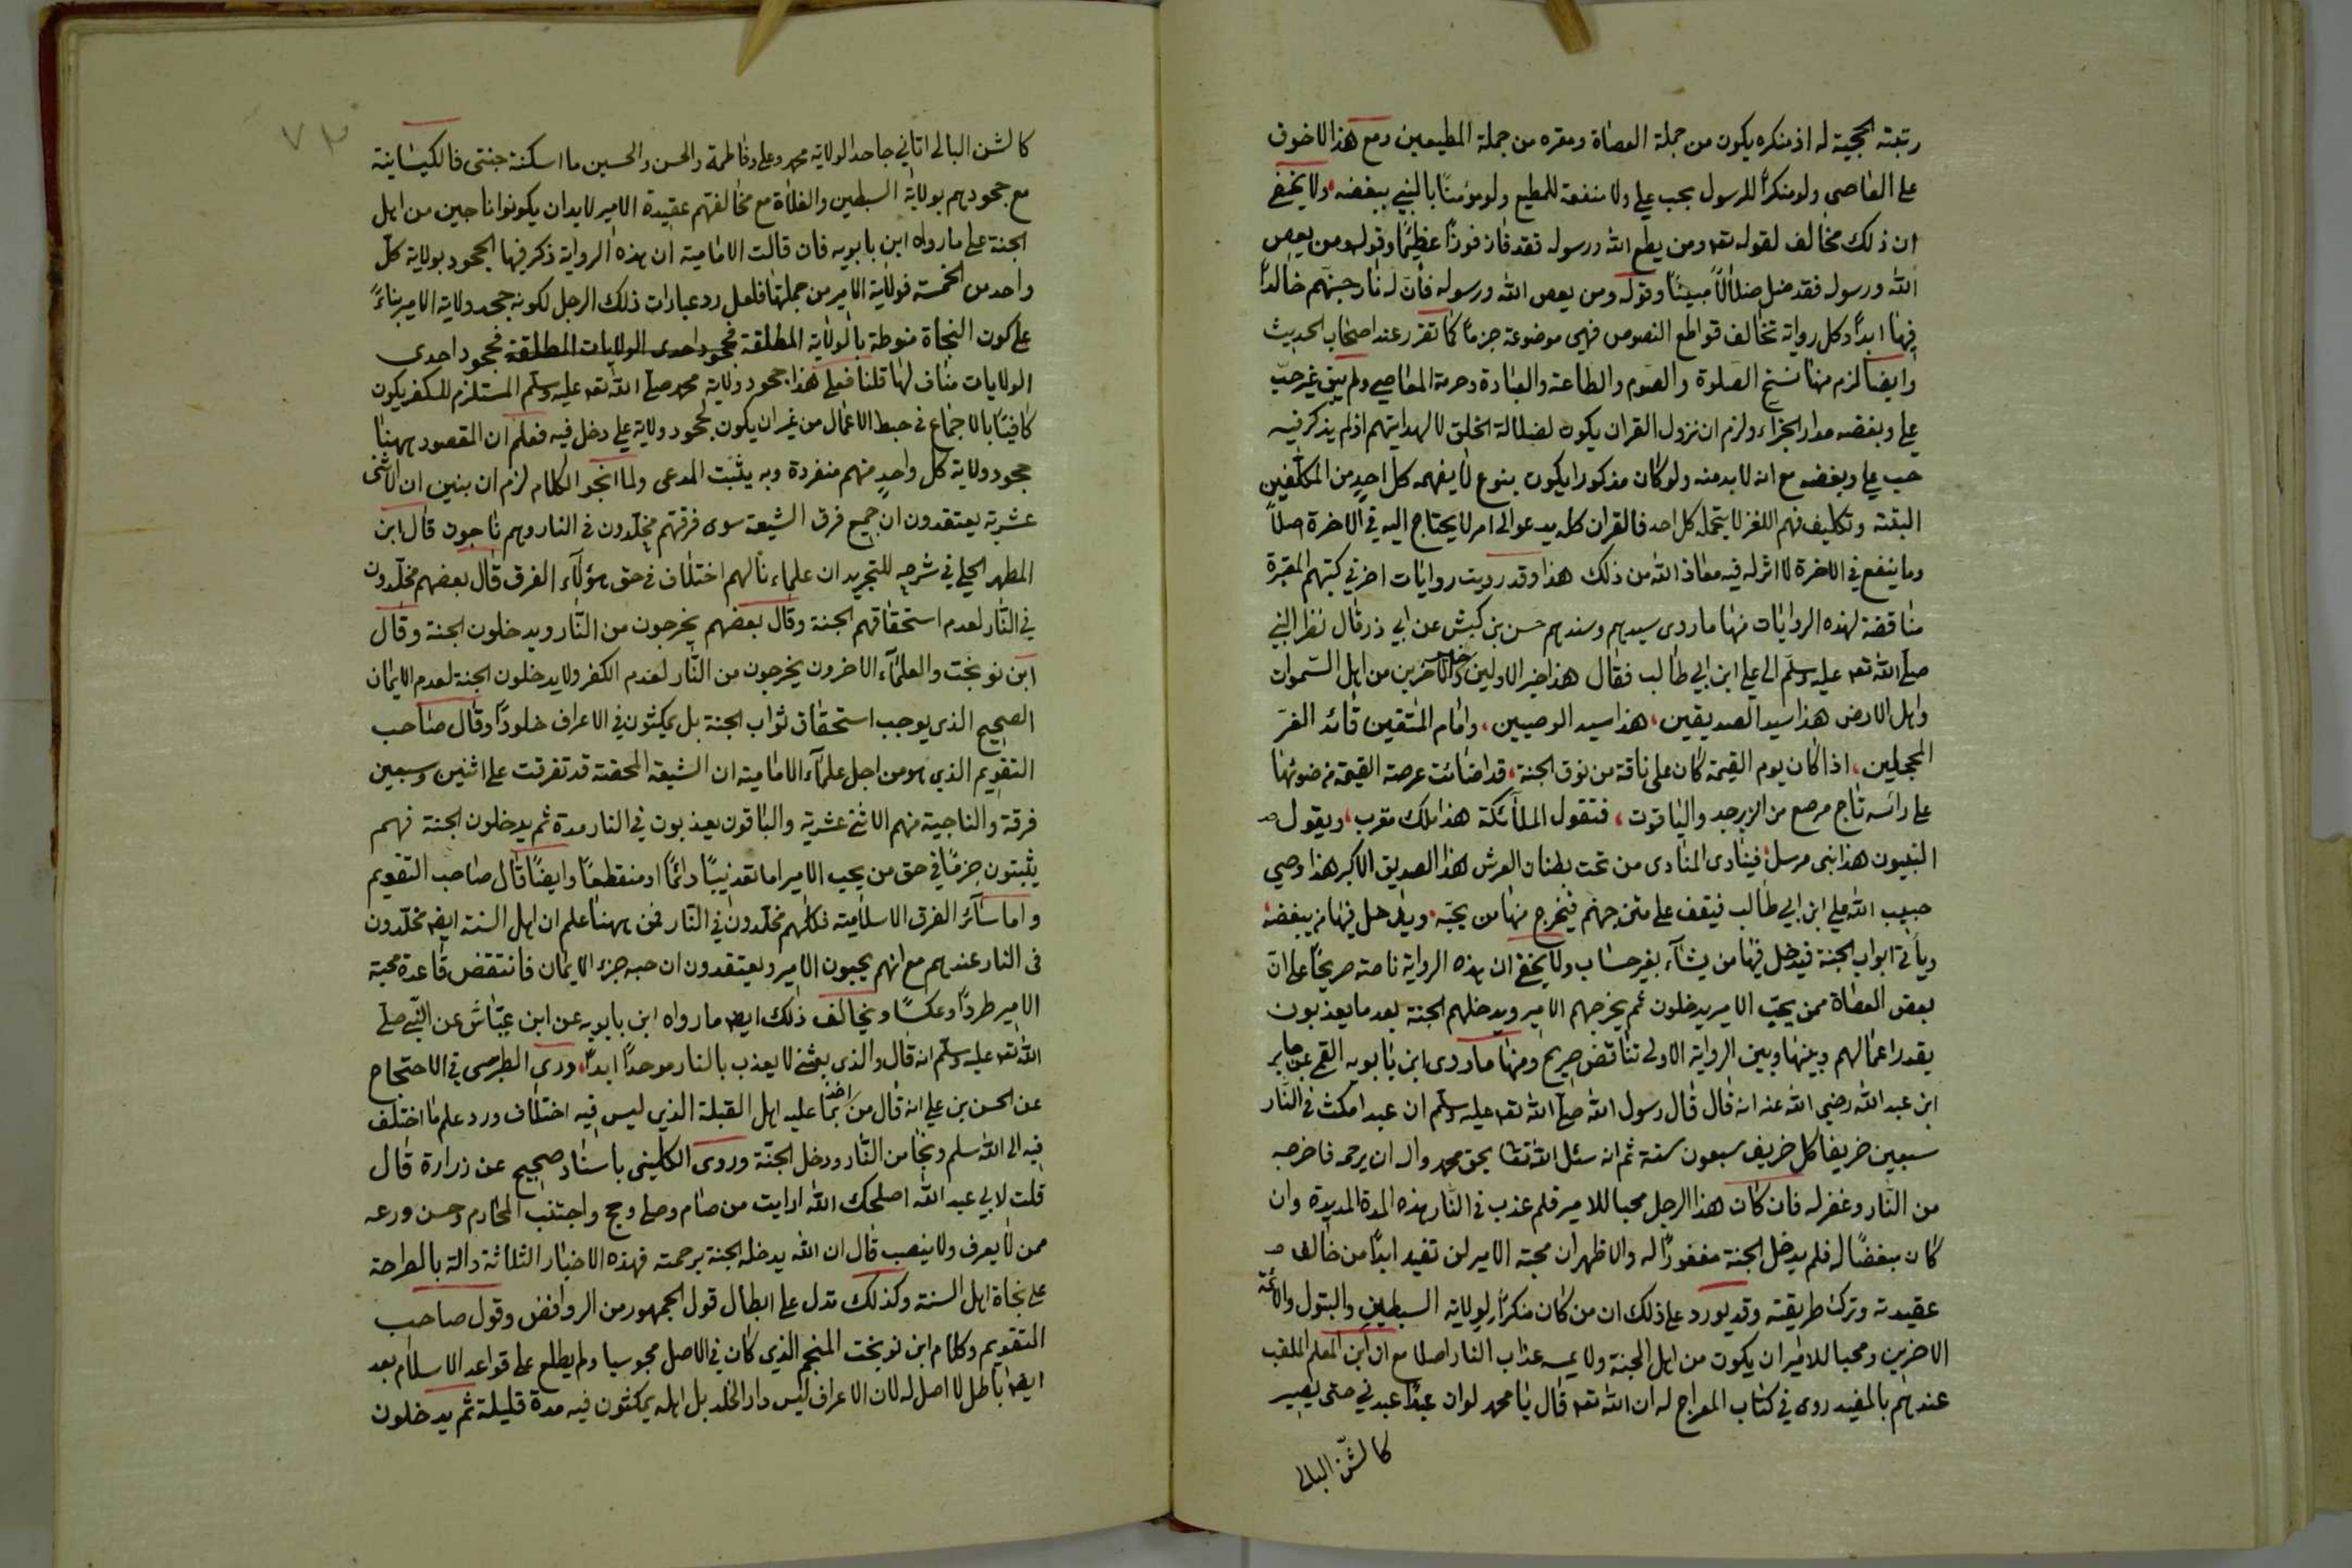 رتبته الحجية له اذ منكره يكون من جملة العصاة ومقره من جملة المطيعين ومع هذا لا خوف
على العاصي ولو منكرًا للرسول بحب علي ولا منفعة للمطيع ولو مؤمنًا بالنبي ببغضه ولا يخفى
ان ذلك مخالف لقوله تعه ومن يطع الله ورسوله فقد فاز فوزًا عظيمًا وقوله ومن يعص
الله ورسوله فقد ضل ضلالاً مبينًا وقوله ومن يعص الله ورسوله فأن له نار جهنم خالدًا
فيها ابدًا وكل رواية تخالف قواطع النصوص فهي موضوعة جزمًا كما تقرر عند اصحاب الحديث
وايضا لزم منها نسخ الصلوة والصوم والطاعة والعبادة وحرمة المعاصي ولم يبق غير حبّ
علي وبغضه مدار الجزاء ولزم ان نزول القران يكون لضلالة الخلق لا لهدايتهم اذ لم يذكر فيه
حب علي وبغضه مع انه لا بد منه ولو كان مذكورا يكون بنوع لا يفهمه كل احدٍ من المكلّفين
البتة وتكليف فهم اللغز لا يتحمله كل احد فالقران كله يدعو الى امر لا يحتاج اليه في الاخرة اصلاً
وما ينفع في الاخرة لا اثر له فيه معاذ الله من ذلك هذا وقد رويت روايات اخر في كتبهم المعتبرة
مناقضة لهذه الروايات منها ما روى سيدهم وسندهم حسن بن كبش عن ابي ذر قال نظر النبي
صلى الله تعه عليه وسلم الى علي ابن ابي طالب فقال هذا خير الاولين وخير الاخرين من اهل السموات
واهل الارض هذا سيد الصديقين، هذا سيد الوصيين، وامام المتقين قائد الغرّ
المحجلين، اذا كان يوم القيمة كان على ناقة من نوق الجنة، قد اضائت عرصة القيمة من ضوئها
على رأسه تاج مرصع من الزبرجد والياقوت، فتقول الملائكة هذا ملك مقرب، ويقول
النبيون هذا نبي مرسل فينادى المنادى من تحت بطنان العرش هذا الصديق الاكبر هذا وصي
حبيب الله علي ابن ابي طالب فيقف على متن جهنم فيخرج منها من يحبّه، ويدخل فيها من يبغضه،
ويأتي ابواب الجنة فيدخل فيها من يشآء بغير حساب ولا يخفى ان هذه الرواية ناصة صريحًا على انّ
بعض العصاة ممن يحبّ الامير يدخلون ثم يخرجهم الامير ويدخلهم الجنة بعد ما يعذبون
بقدر اعمالهم وبينها وبين الرواية الاولى تناقض صريح ومنها ما روى ابن بابويه القمي عن جابر
ابن عبد الله رضي الله عنه انه قال قال رسول الله صلى الله تعه عليه وسلم ان عبدا مكث في النّار
سبعين خريفا كل خريف سبعون سنة ثم انه سئل الله تعا بحق محمد واله ان يرحمه فاخرجه
من النّار وغفر له فان كان هذا الرجل محبا للامير فلم عذب في النّار هذه المدة المديدة وان
كان مبغضًا له فلم يدخل الجنة مغفورًا له والاظهر ان محبة الامير لن تفيد ابدًا من خالف
عقيدته وترك طريقته وقد يورد على ذلك ان من كان منكرًا لولاية السبطين والبتول والائمة
الاخرين ومحبا للامير ان يكون من اهل الجنة ولا يمسه عذاب النار اصلا مع ان ابن المعلم الملقب
عندهم بالمفيد روى في كتاب المعراج له ان الله تعه قال يا محمد لو ان عبدًا عبدني حتى يصير
كالشن البالي
٧٣
كالشن البالي اتاني جاحدا لولاية محمد وعلي وفاطمة والحسن والحسين ما اسكنته جنتى فالكيسانية
مع جحودهم بولاية السبطين والغلاة مع مخالفتهم عقيدة الامير لا بد ان يكونوا ناجين من اهل
الجنة على ما رواه ابن بابويه فان قالت الامامية ان هذه الرواية ذكر فيها الجحود بولاية كلّ
واحد من الخمسة فولاية الامير من جملتها فلعل رد عبادات ذلك الرجل لكونه جحد ولاية الامير بناءً
على كون النجاة منوطة بالولاية المطلقة فجحود احدى الولايات المطلقة فجحود احدى
الولايات مناف لها قلنا فعلى هذا جحود ولاية محمد صلى الله تعه عليه وسلم المستلزم للكفر يكون
كافيًا بالاجماع في حبط الاعمال من غير ان يكون لجحود ولاية علي دخل فيه فعلم ان المقصود ههنا
جحود ولاية كل واحدٍ منهم منفردة وبه يثبت المدعى ولما انجر الكلام لزم ان نبين ان الاثنى
عشرية يعتقدون ان جميع فرق الشيعة سوى فرقتهم مخلّدون في النار وهم ناجون قال ابن
المطهر الحلي في شرحه للتجريد ان علماءنا لهم اختلاف في حق هؤلاء الفرق قال بعضهم مخلّدون
في النّار لعدم استحقاقهم الجنة وقال بعضهم يخرجون من النّار ويدخلون الجنة وقال
ابن نوبخت والعلمآء الاخرون يخرجون من النّار لعدم الكفر ولا يدخلون الجنة لعدم الايمان
الصحيح الذي يوجب استحقاق ثواب الجنة بل يمكثون في الاعراف خلودًا وقال صاحب
التقويم الذي هو من اجل علمآء الامامية ان الشيعة المحقة قد تفرقت على اثنين وسبعين
فرقة والناجية منهم الاثنى عشرية والباقون يعذبون في النار مدة ثم يدخلون الجنة فهم
يثبتون جزمًا في حق من يحب الامير اما تعذيبًا دائمًا او منقطعًا وايضًا قال صاحب التقويم
واما سائر الفرق الاسلامية فكلهم مخلّدون في النّار فمن ههنا علم ان اهل السنة ايضا مخلّدون
في النار عندهم مع انهم يحبون الامير ويعتقدون ان حبه جزء الايمان فانتقض قاعدة محبة
الامير طردًا وعكسًا ويخالف ذلك ايضا ما رواه ابن بابويه عن ابن عبّاس عن النّبي صلى
الله تعه عليه وسلم انه قال والذي بعثنى لا يعذب بالنار موحدًا ابدًا، وروى الطبرسي في الاحتجاج
عن الحسن بن علي انه قال من اخذ بما عليه اهل القبلة الذي ليس فيه اختلاف ورد علم ما اختلف
فيه الى الله سلم ونجا من النّار ودخل الجنّة وروى الكليني باسناد صحيح عن زرارة قال
قلت لابي عبد الله اصلحك الله ارايت من صام وصلى وحج واجتنب المحارم وحسن ورعه
ممن لا يعرف ولا ينصب قال ان الله يدخله الجنة برحمته فهذه الاخبار الثلاثة دالة بالصراحة
على نجاة اهل السنة وكذلك تدل على ابطال قول الجمهور من الروافض وقول صاحب
التقويم وكلام ابن نوبخت المنجم الذي كان في الاصل مجوسيا ولم يطلع على قواعد الاسلام بعد
ايضا باطل لا اصل له لان الاعراف ليس دار الخلد بل اهله يمكثون فيه مدة قليلة ثم يدخلون